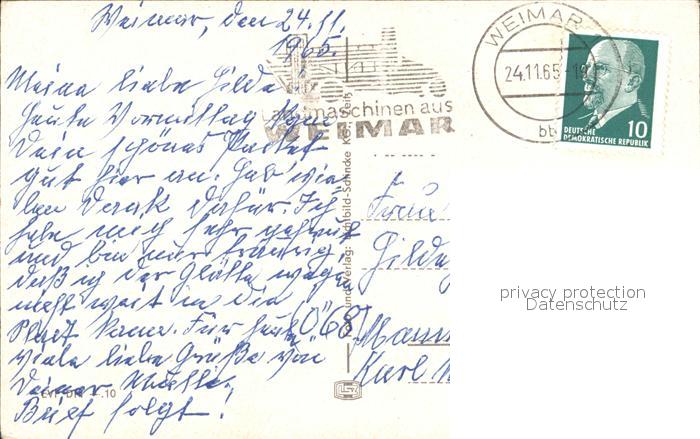 Weimar, den 24.11.
1965.
Meine liebe Hilde
Heute Vormittag kam
Dein schönes Paket
gut hier an. Hab vie-
len Dank dafür. Ich
habe mich sehr gefreut
und bin nur traurig,
daß ich der Glätte wegen
nicht weit in die
Stadt kann. Für heute
viele liebe Grüße von
Deiner Mutti.
Brief folgt!
Landmaschinen aus
WEIMAR
WEIMAR
24.11.65-19
bb
DEUTSCHE
DEMOKRATISCHE REPUBLIK
10
Frau
Hilde
(Ö 68)
Mann
Karl M
privacy protection
Datenschutz